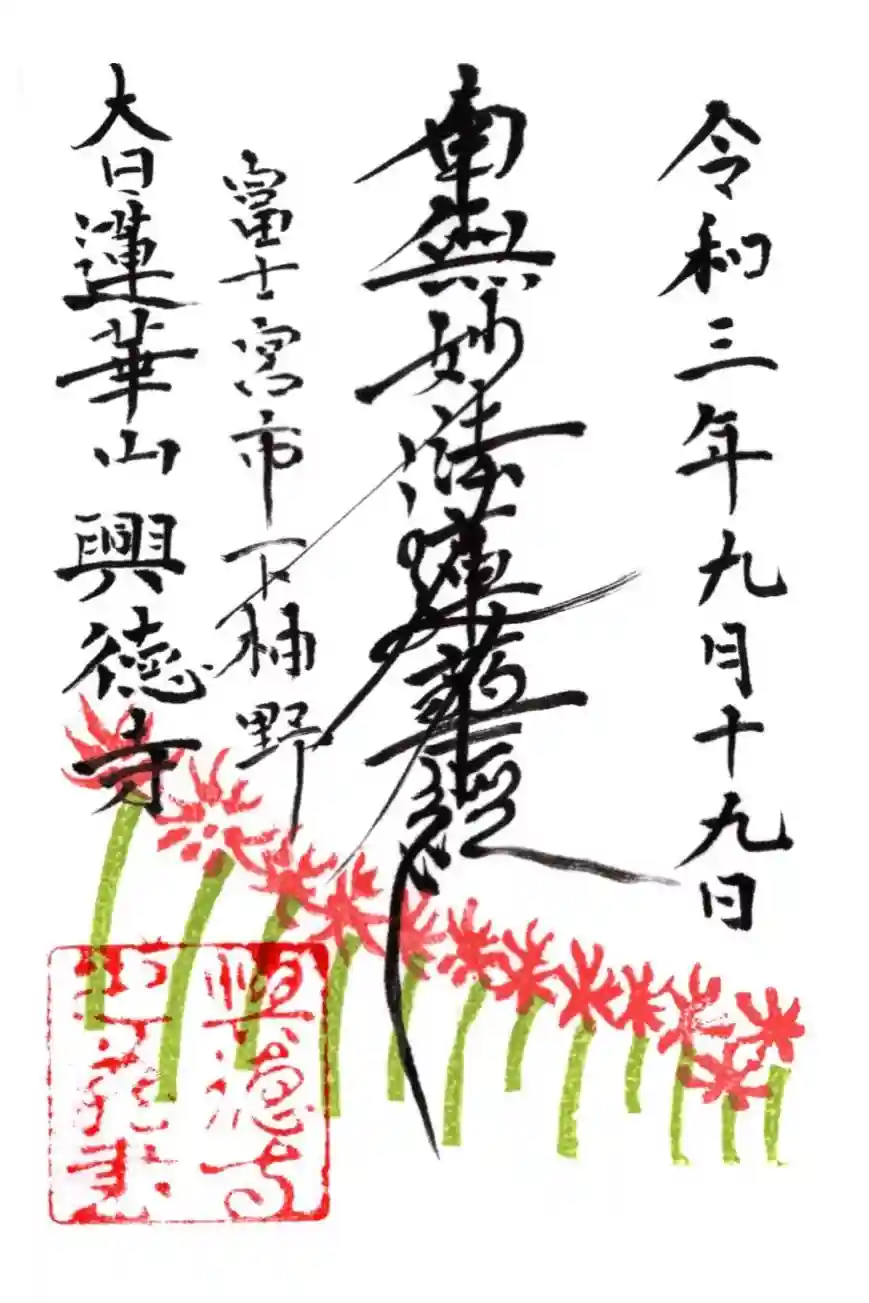 令和三年九月十九日
南無妙法蓮華經
富士宮市下柚野
大日蓮華山興徳寺
興徳寺